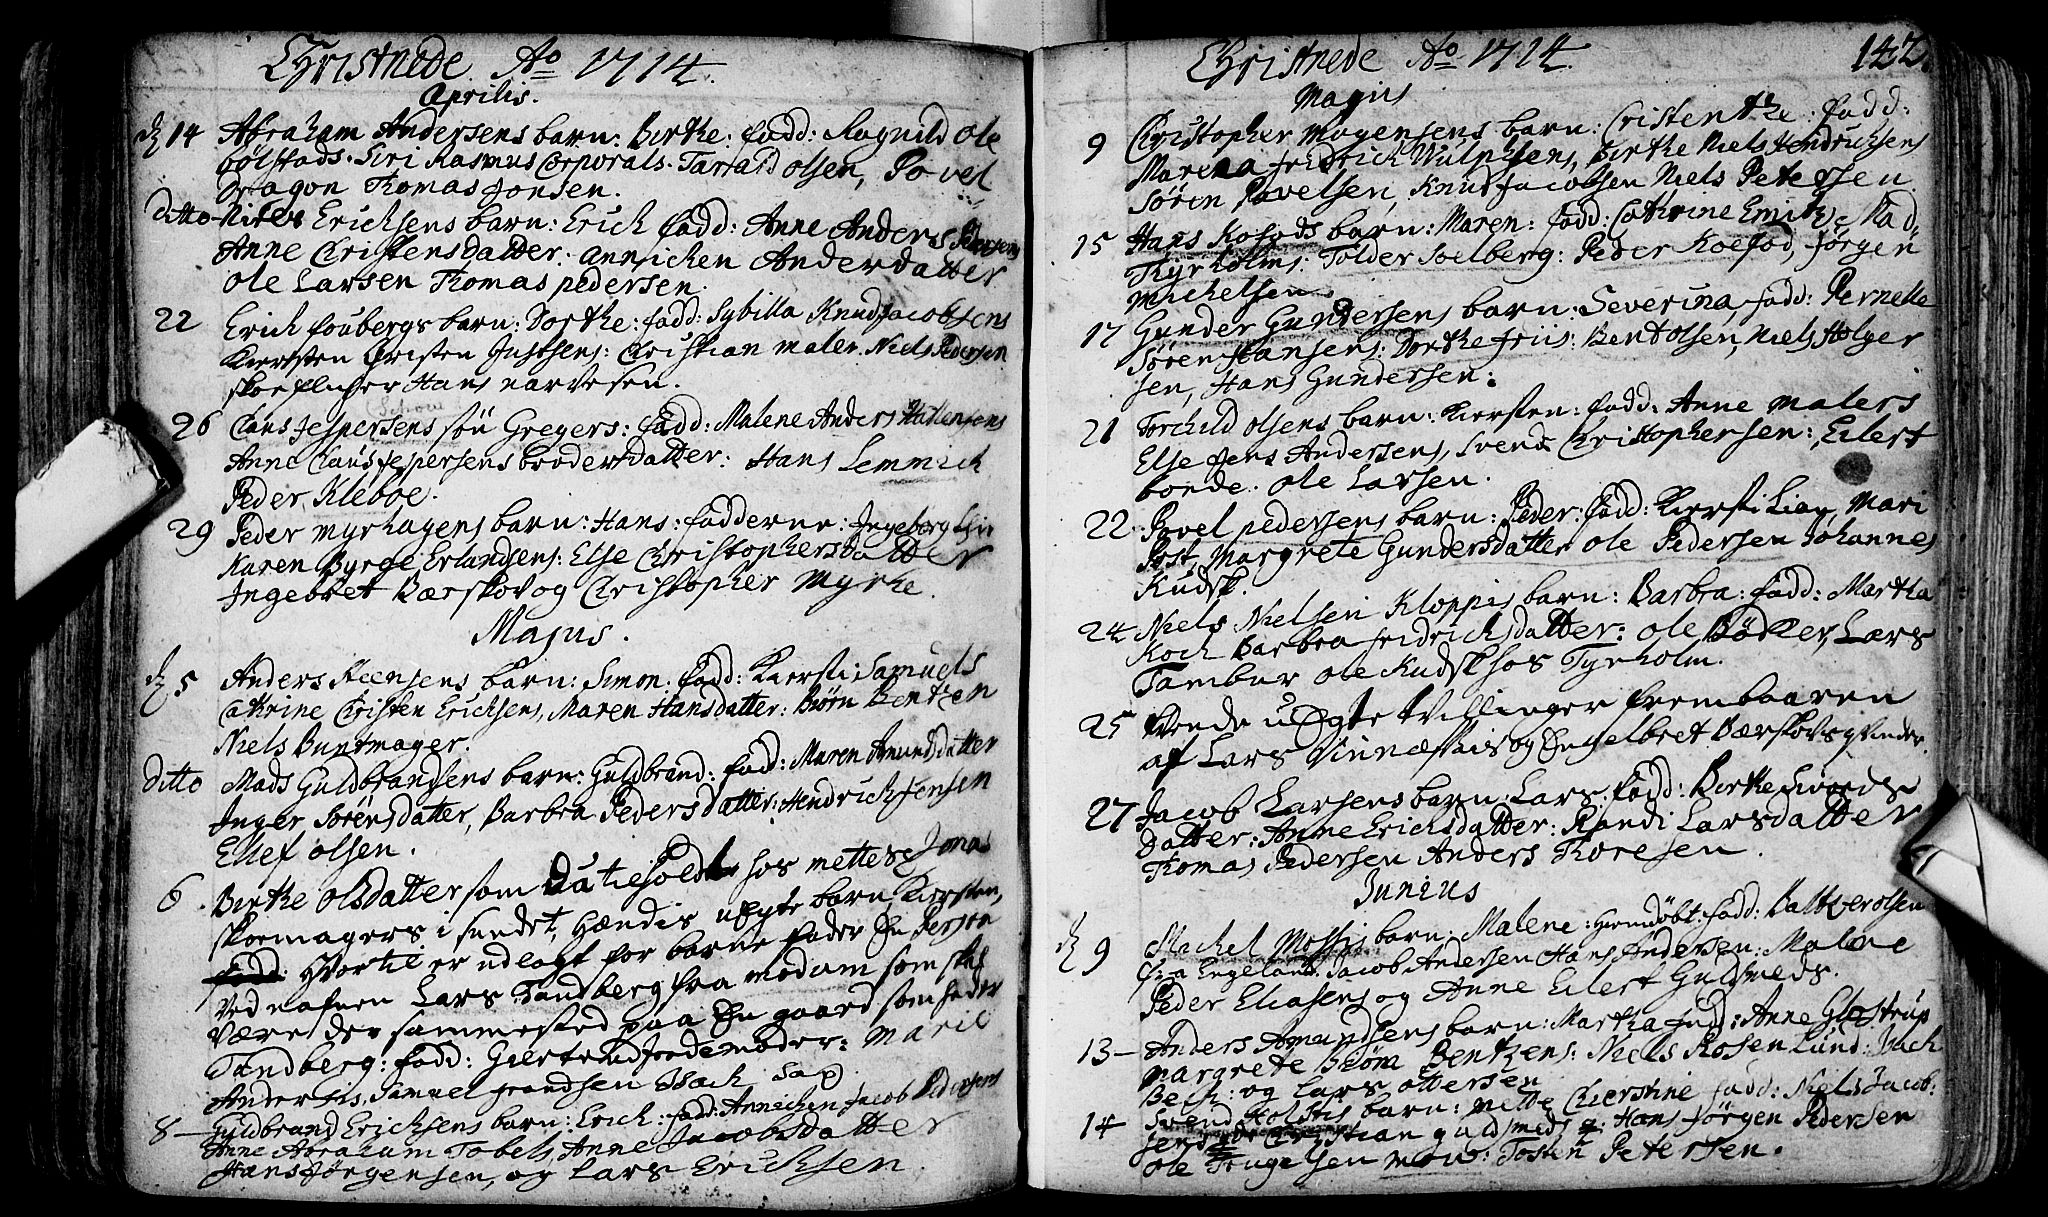 Christnede Ao 1714.
Aprilis.
14 Abraham Andersens barn: Birthe: fadd: Ragnild Ole
bölstads. Siri Rasmus Corporals. Tarrald olsen, Povel
Dragon Thomas Jonsen.
ditto Ericksens barn: Erich fadd: Anne Anders Pedersens
Anne Christensdatter. annichen Andersdatter
ole Larsen Thomas pedersen.
22 Erich foubergs barn: Dorthe: fadd: Sybilla Knud Jacobsens
Kiersten Christen Justsens: Christian maler. Niels Pedersen
skoeflicher Hans narvesen.
26 Claus Jespersens sön Gregers: fadd: Malene Anders
Anne Claus Jespersens broders datter: Hans Lemmich
Peder Kleboe.
29 Peder myrhagens barn: Hans: fadderne: Ingeborg Lie
Karen Byrge Erlandsens: Else Christophersdatter
Ingebret Bærskov og Christopher Myrhe.
Majus.
5 Anders Reensens barn: Simon: fadd: Kiersti Samuels
Cathrine Christen Ericksens, Maren Hansdatter: Biørn Bentzen
Niels Buntmager.
ditto Mads Guldbrandsens barn: Guldbrand: fadd: Maren Amundsdatter
Inger Sörensdatter, Barbra Pedersdatter: Hendrich Jensen
Ellef olsen.
6 Birthe olsdatter som sig hos mettes Jonas
skoemagers i sundet, Hændis uægte barn, Kiersten,
hvortil er udlagt for barne fader En Person
ved nafnen Lars Tandberg fra modum som skal
være der sammested paa En gaard som heder
Tandberg: fadd: Giertrud Jordemoder: Marie
Anders Lis, Samuel frandsen Isach
8 Guldbrand Ericksens barn: Erich: fadd: Annichen Jacob Pedersens
Anne Abraham Tobels, Anne Jacobsdatter
Hans Jörgensen, og Lars Ericksen.
Christnede Ao 1714. 142.
Majus
9 Christopher Mogensens barn: Cristenthe: fadd:
Marena fridrich Wulphsens, Birthe Niels Hendrichsens
Sören Povelsen, Knud Jacobsen Niels Petersen
15 Hans Kofods barn: Maren: fadd: Cathrine Emitz, Mad
Thyrholms: Tolder Soelberg: Peder Koefod, Jörgen
Michelsen
17 Gunder Gundersens barn: Severina, fadd: Pernelle
Sören Hansens: Dorthe friis: Bent olsen, Niels Holger
sen, Hans Gundersen:
21 Torchild olsens barn: Kiersten: fadd: Anne malers
Else Jens Andersens, Svend Christophersen: Eilert
bonde. ole Larsen.
22 Povel pedersens barn: Peder: fadd: Kiersti Lian, Mari
Post, Margrete Gundersdatter ole Pedersen Johannes
Kudsk.
24 Niels Nielsen Kloppis barn: Barbra: fadd: Martha
Koch Barbra fridrichsdatter: ole Bödker, Lars
Tambur ole Kudsk hos Tyrholm.
25 tvende uægte tvillinger frembaaren
af Lars og Engelbret Bærskovs qvinder.
27 Jacob Larsens barn: Lars: fadd: Birthe Sivords
datter: Anne Ericksdatter: Randi Larsdatter
Thomas Pedersen Anders Thoresen.
Junius
9 Michel Mossis barn: Malene: Hiemdöbt: fadd: Baltzer olsen
Engeland. Jacob Andersen Hans Andersen: Malene
Peder Eliasens og Anne Eilert Guldsmeds.
13 Anders Amundsens barn: Martha fadd: Anne Glostrup
Margrete Biörn Bentzens: Niels Rosenlund:
Bech: og Lars ottersen
14 Svend Holstis barn: Mette Chierstine fadd: Niels Jacob:
sens Christian guldsmeds Hans Jörgen Pedersen
ole Trugelsen Tosten Petersen.